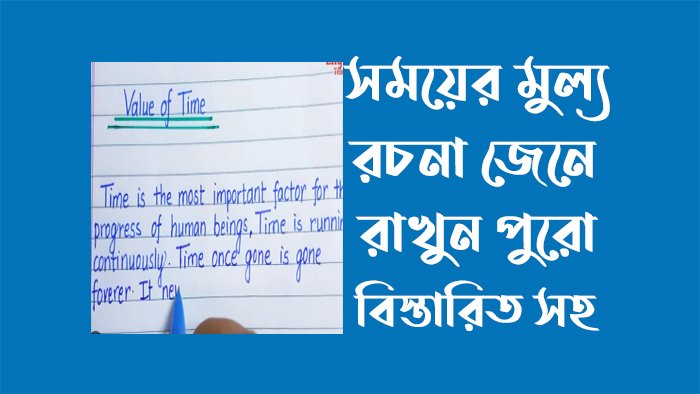 Value of Time
Time is the most important factor for
progress of human beings, Time is
continuously. Time once gone is gone
forerer. It
সময়ের মুল্য
রচনা জেনে
রাখুন পুরো
বিস্তারিত সহ